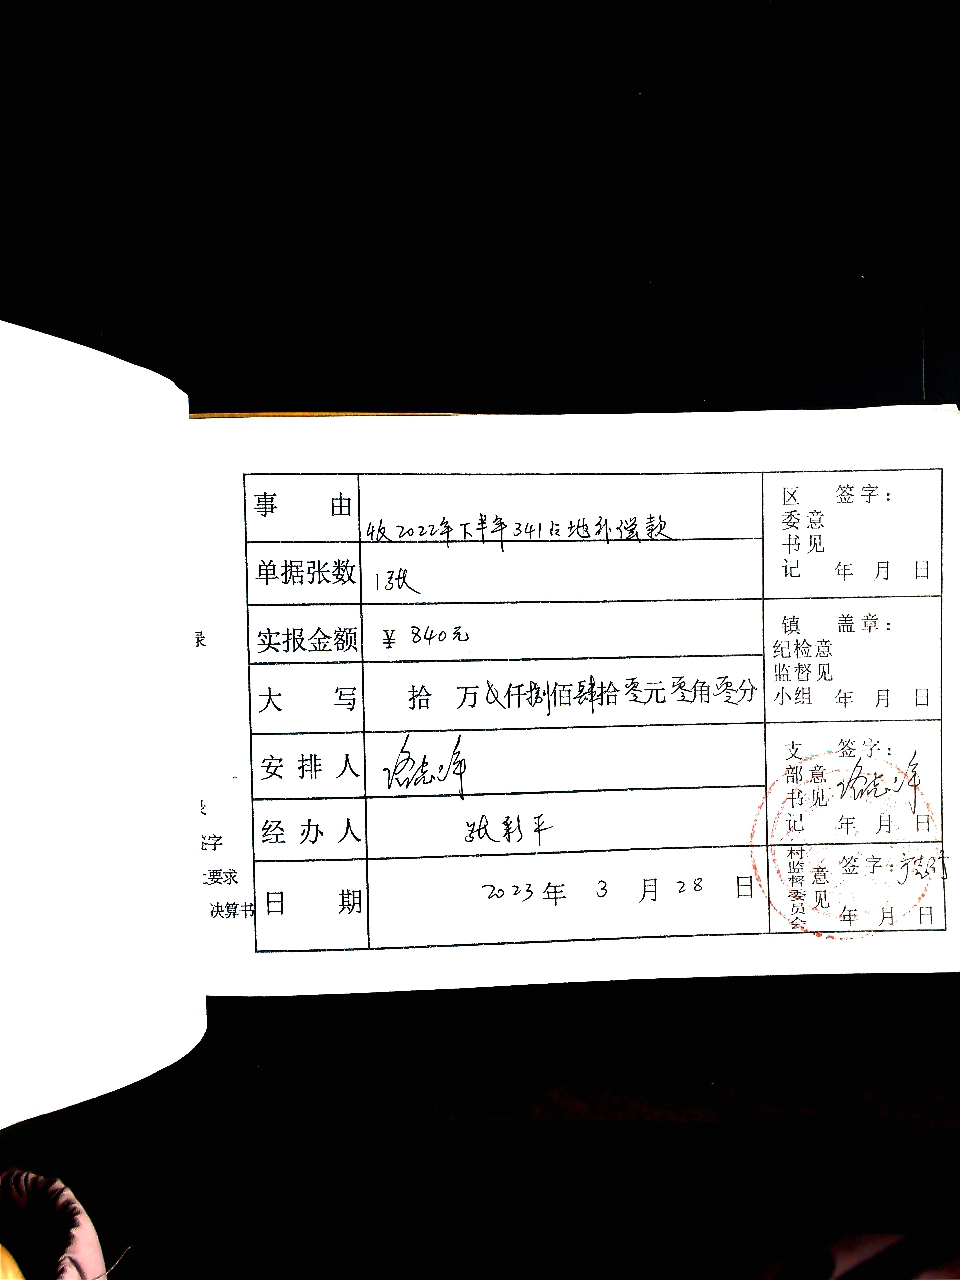 事 由 收2022年下半年341占地补偿款
单据张数 1张
实报金额 ¥ 840元
大 写 拾 万 仟捌佰肆拾零元零角零分
安 排 人
经 办 人 张彩平
日 期 2023年 3 月 28 日
区委书记意见 签字：
年 月 日
镇纪检监督小组意见 盖章：
年 月 日
支部书记意见 签字：
年 月 日
村监督委员会意见 签字：
年 月 日
录
签字
要求
决算书